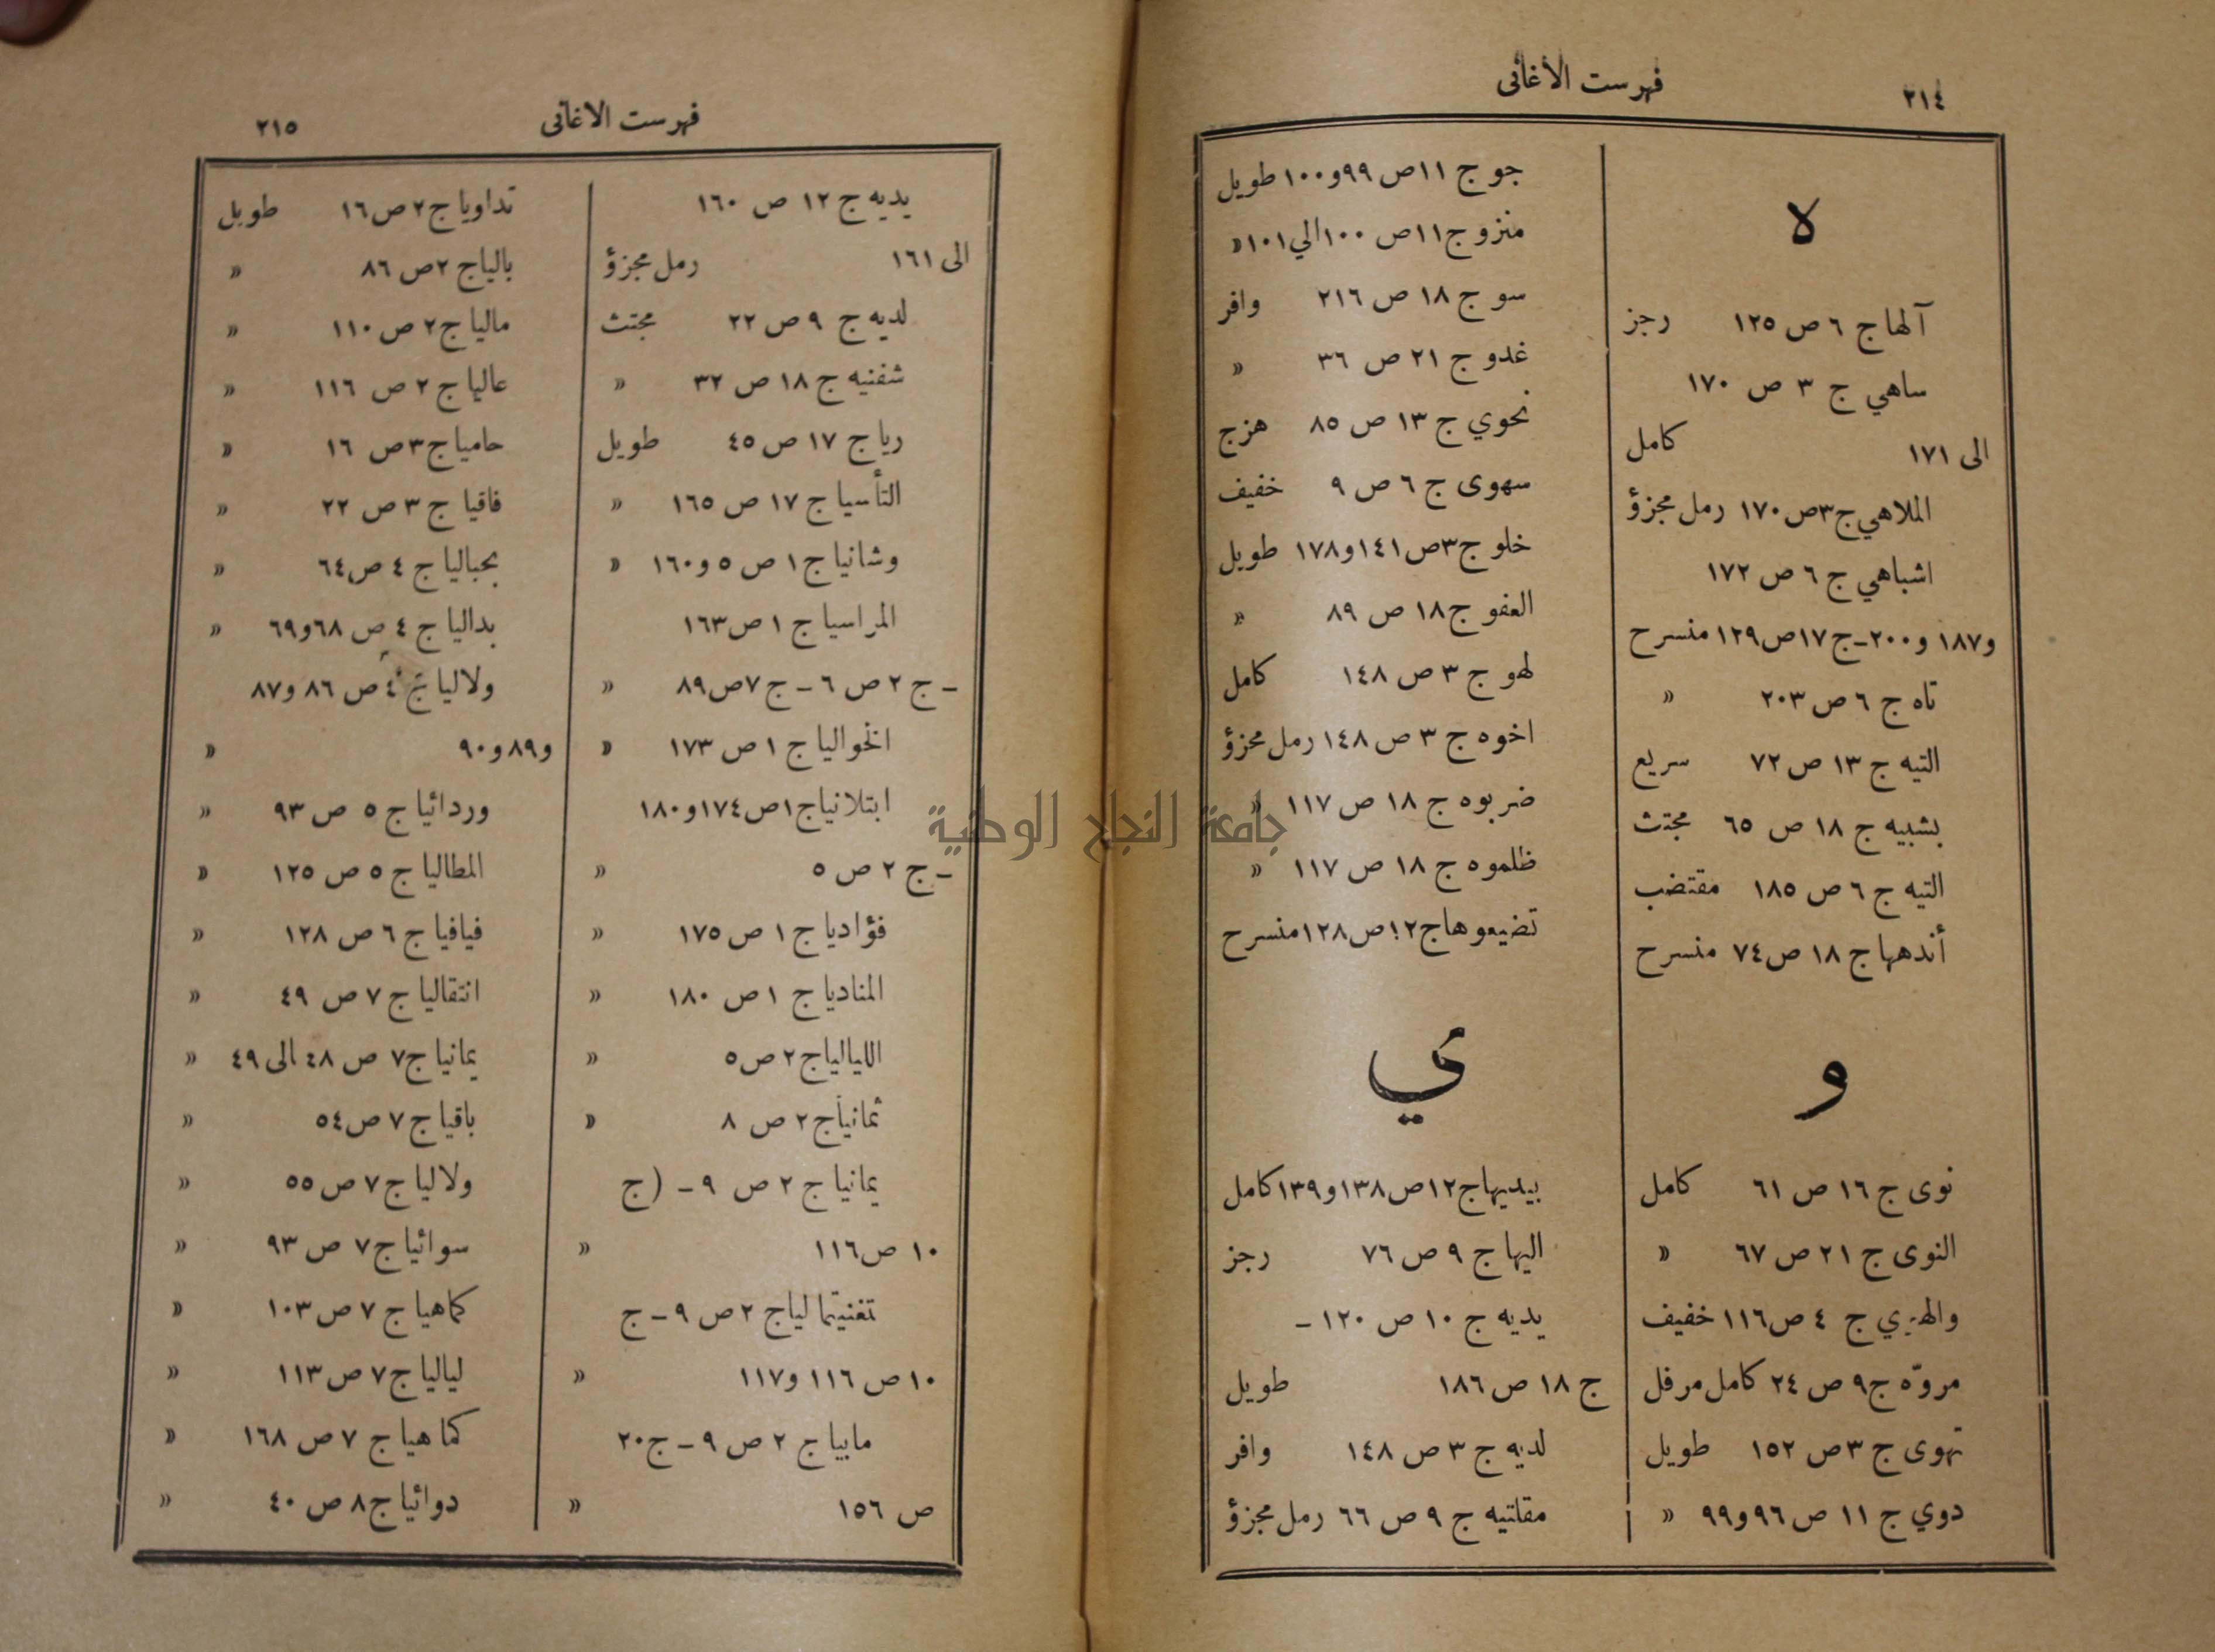 ٢١٤
فهرست الأغانى
لا
آلهاج ٦ ص ١٢٥ رجز
ساهي ج ٣ ص ١٧٠
الى ١٧١ كامل
الملاهي ج٣ص ١٧٠ رمل مجزؤ
اشباهي ج ٦ ص ١٧٢
و١٨٧ و٢٠٠-ج ١٧ص١٢٩ منسرح
تاه ج ٦ ص ٢٠٣ »
التيه ج ١٣ ص ٧٢ سريع
بشبيه ج ١٨ ص ٦٥ مجتث
التيه ج ٦ ص ١٨٥ مقتضب
أندهها ج ١٨ ص٧٤ منسرح
و
نوى ج ١٦ ص ٦١ كامل
النوى ج ٢١ ص ٦٧ »
ج ٤ ص١١٦ خفيف
مروّه ج٩ ص ٢٤ كامل مرفل
تهوى ج ٣ ص ١٥٢ طويل
دوي ج ١١ ص ٩٦ و٩٩ »
جو ج ١١ص ٩٩و١٠٠ طويل
منزو ج١١ص ١٠٠الي١٠١»
سو ج ١٨ ص ٢١٦ وافر
غدو ج ٢١ ص ٣٦ »
نحوي ج ١٣ ص ٨٥ هزج
سهوى ج ٦ ص ٩ خفيف
خلو ج٣ص ١٤١و١٧٨ طويل
العفو ج١٨ ص ٨٩ »
لهو ج ٣ ص ١٤٨ كامل
اخوه ج ٣ ص ١٤٨ رمل مجزؤ
ضربوه ج ١٨ ص ١١٧ »
ظلموه ج ١٨ ص ١١٧ »
تضيعوهاج١٢ص١٢٨منسرح
ي
بيديهاج١٢ص١٣٨و١٣٩كامل
اليهاج ٩ ص ٧٦ رجز
يديه ج ١٠ ص ١٢٠ -
ج ١٨ ص ١٨٦ طويل
لديه ج ٣ ص ١٤٨ وافر
مقلتيه ج ٩ ص ٦٦ رمل مجزؤ
فهرست الاغانى
٢١٥
يديه ج ١٢ ص ١٦٠
الى ١٦١ رمل مجزؤ
لديه ج ٩ ص ٢٢ مجتث
شفنيه ج ١٨ ص ٣٢ »
رياج ١٧ ص ٤٥ طويل
التأسياج ١٧ ص ١٦٥ »
وشانياج ١ ص ٥ و١٦٠ »
المراسياج ١ ص١٦٣
- ج ٢ ص ٦ - ج ٧ص٨٩ »
انخوالياج ١ ص ١٧٣ »
ابتلانياج١ص١٧٤و١٨٠
- ج ٢ ص ٥ »
فؤادياج ١ ص ١٧٥ »
المنادياج ١ ص ١٨٠ »
اللياليا ج ٢ ص ٥ »
ثمانياج ٢ ص ٨ »
يمانياج ٢ ص ٩ - (ج
١٠ ص١١٦ »
تغنيتما لياج ٢ ص ٩ - ج
١٠ ص ١١٦ و١١٧ »
مابياج ٢ ص ٩ - ج٢٠
ص ١٥٦ »
تداوياج٢ص١٦ طويل
بالياج ٢ص ٨٦ »
مالياج٢ ص ١١٠ »
عالياج ٢ ص ١١٦ »
حامياج٣ص ١٦ »
فاقياج ٣ ص ٢٢ »
بحبالياج ٤ ص٦٤ »
بدالياج ٤ ص ٦٨و٦٩ »
ولالياج ٤ص ٨٦ و٨٧
و٨٩و٩٠ »
وردائياج ٥ ص ٩٣ »
المطالياج ٥ ص ١٢٥ »
فيافياج ٦ ص ١٢٨ »
انتقالياج ٧ ص ٤٩ »
يمانياج٧ ص ٤٨ الى ٤٩ »
باقياج ٧ ص٥٤ »
ولالياج ٧ ص ٥٥ »
سوائياج٧ ص ٩٣ »
كماهياج ٧ ص ١٠٣ »
ليالياج ٧ ص١١٣ »
كماهياج ٧ ص ١٦٨ »
دوائياج٨ ص ٤٠ »
جامعة النجاح الوطنية